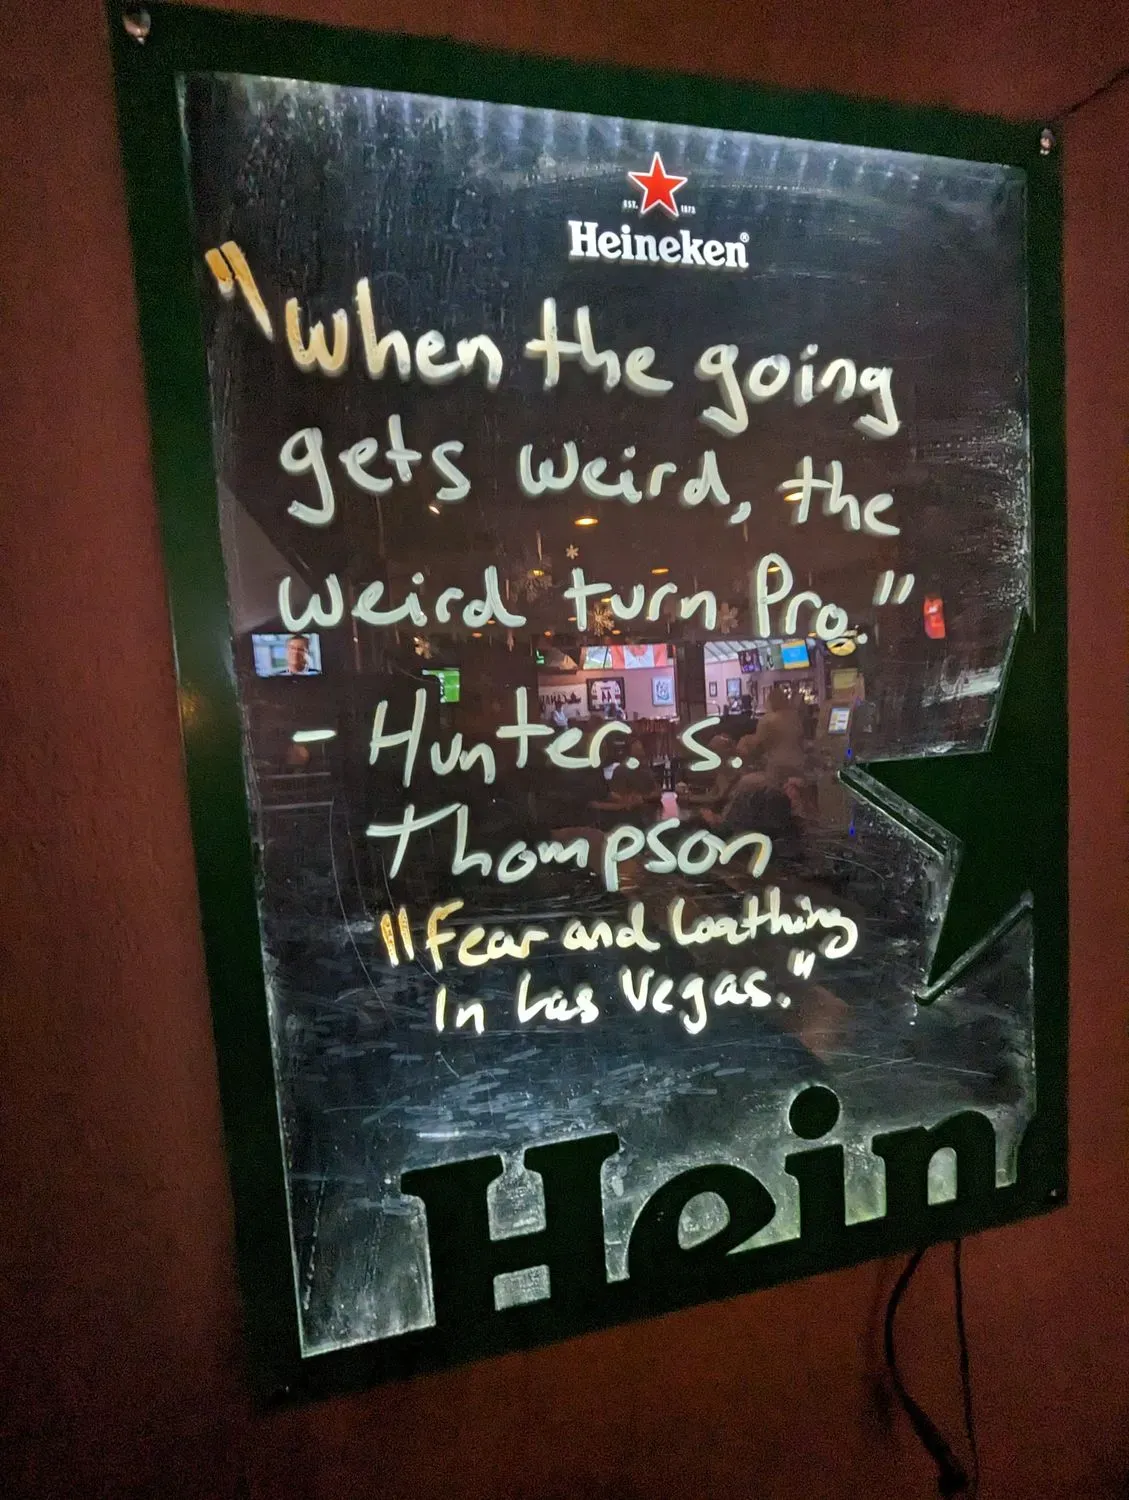 EST. 1873
Heineken®
"When the going
gets weird, the
weird turn Pro."
- Hunter. S.
Thompson
"Fear and Loathing
In Las Vegas."
Hein